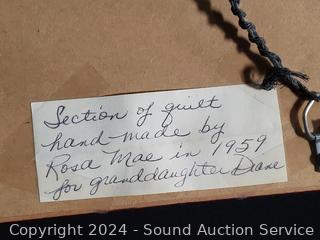 Section of quilt
hand made by
Rosa Mae in 1959
for granddaughter Diane
Copyright 2024 - Sound Auction Service